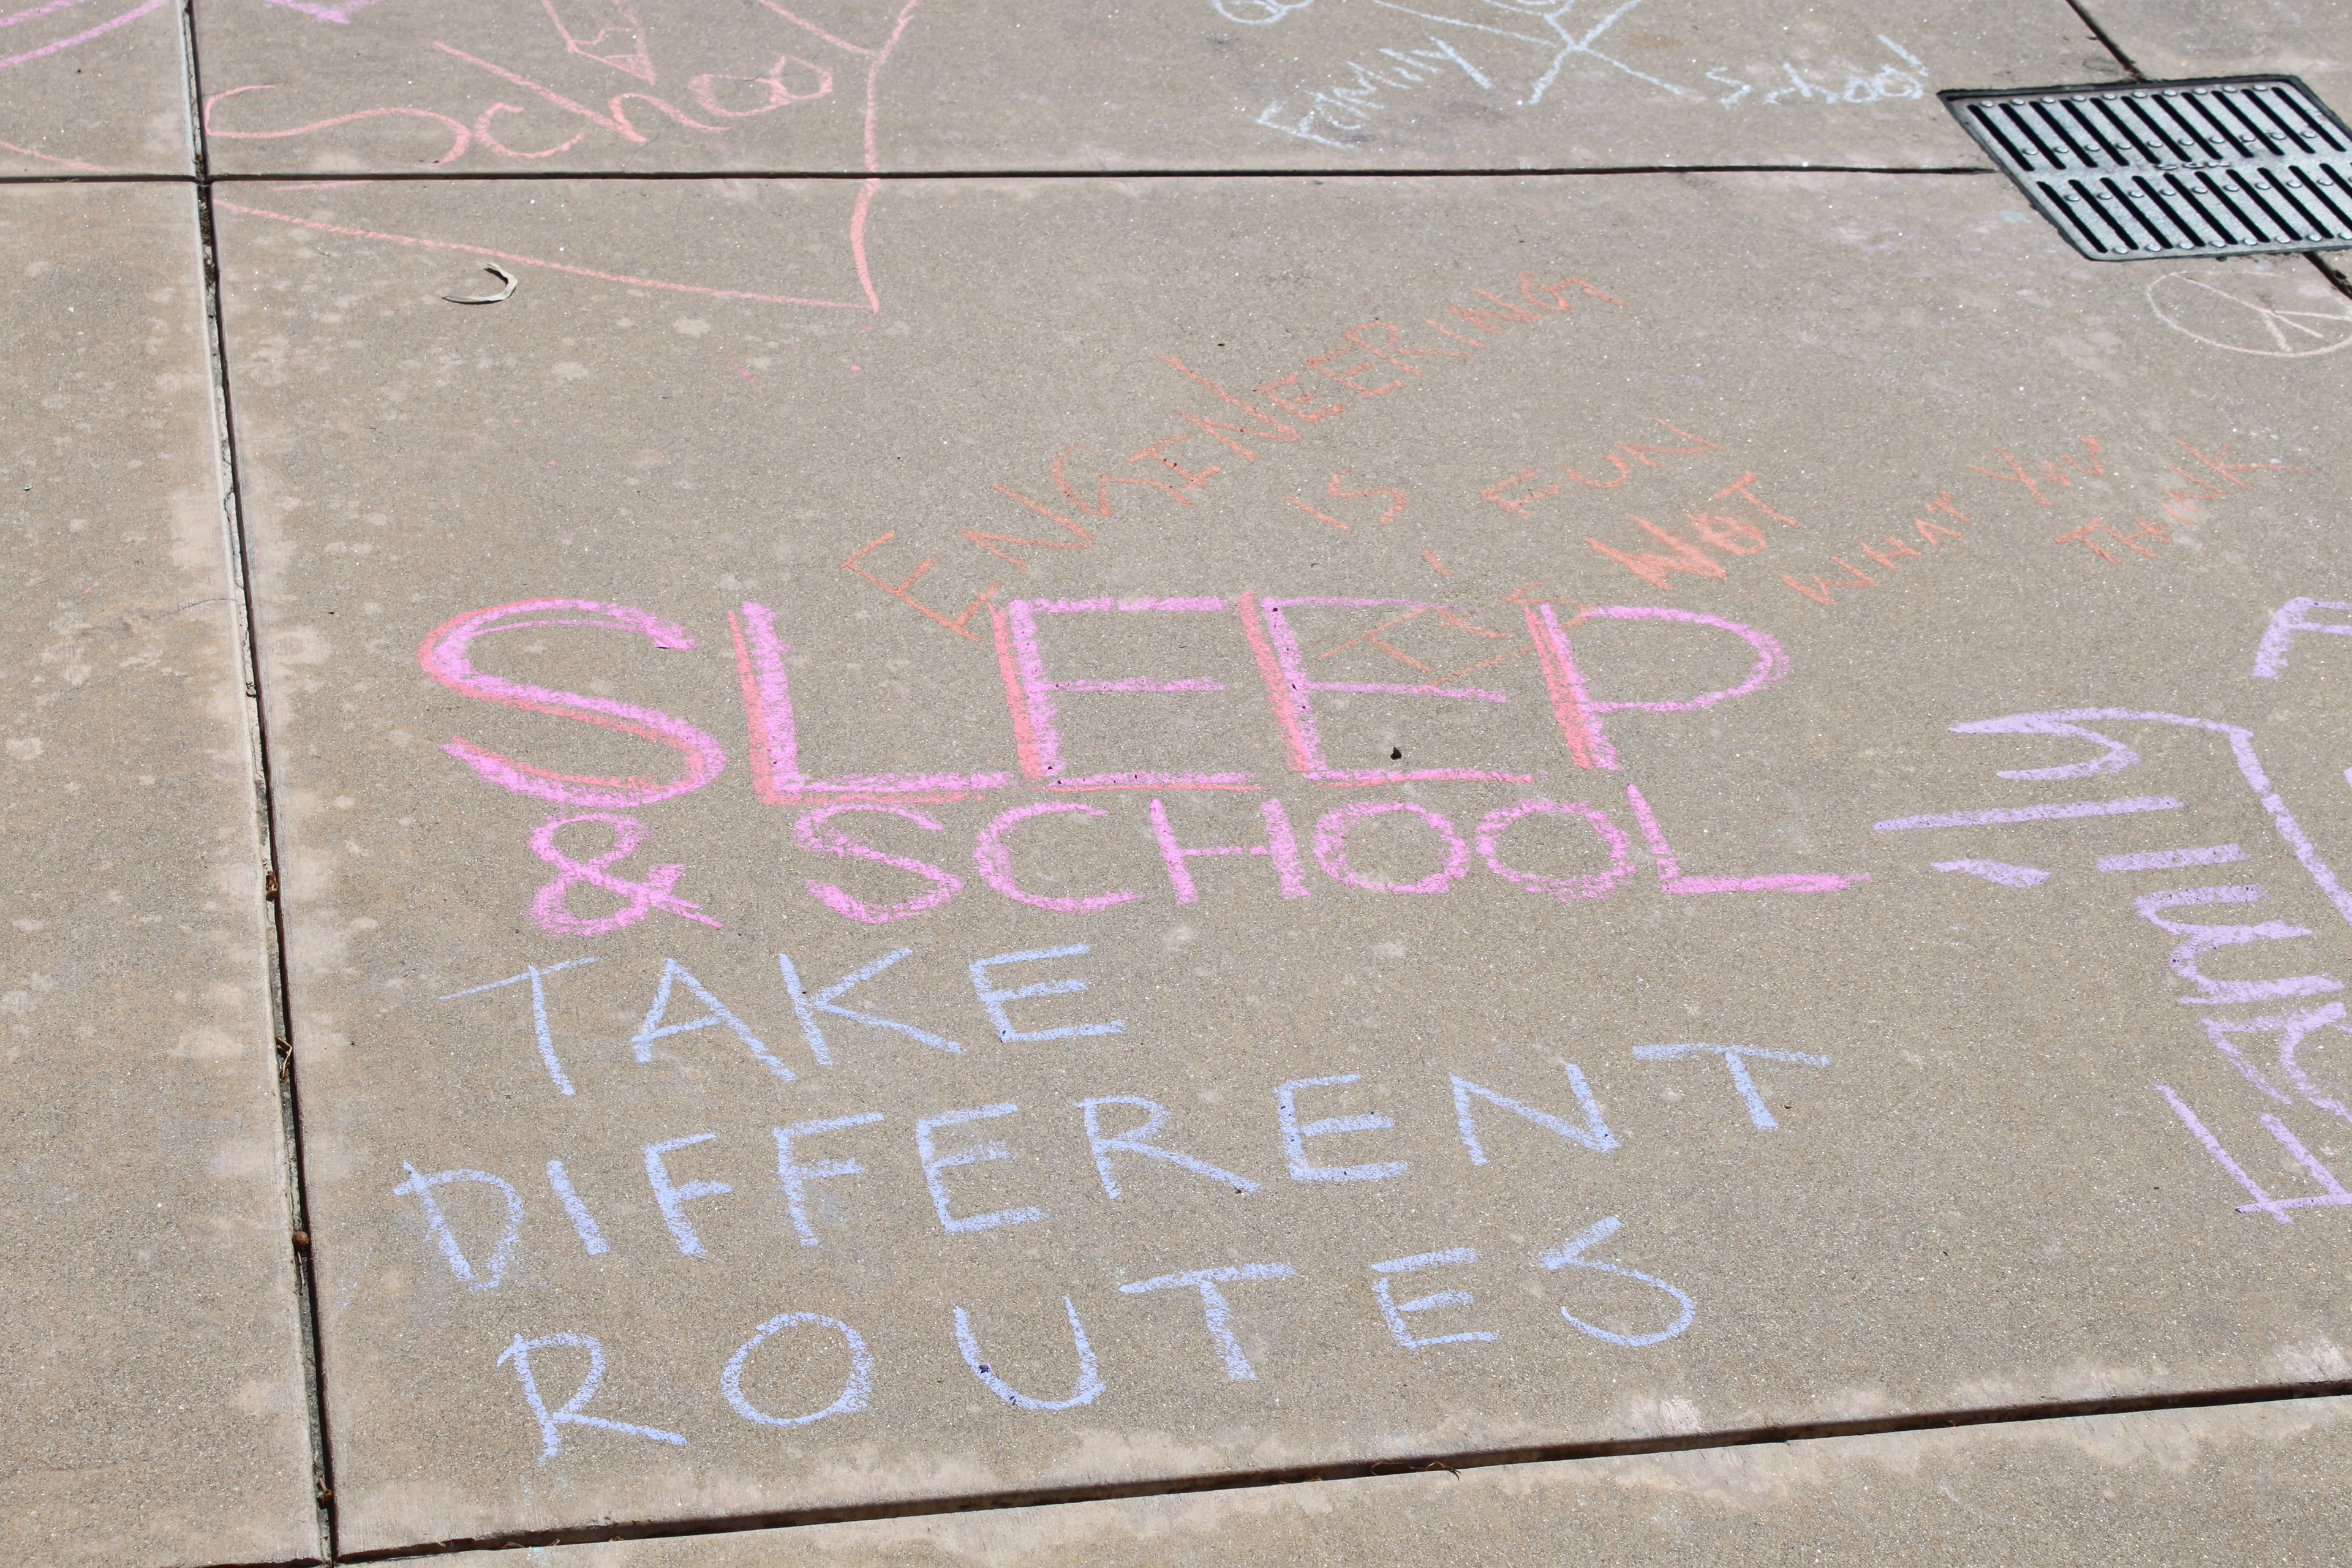 School
Family
School
ENGINEERING
IS FUN
IT'S NOT
WHAT YOU
THINK
SLEEP
& SCHOOL
TAKE
DIFFERENT
ROUTES
Family